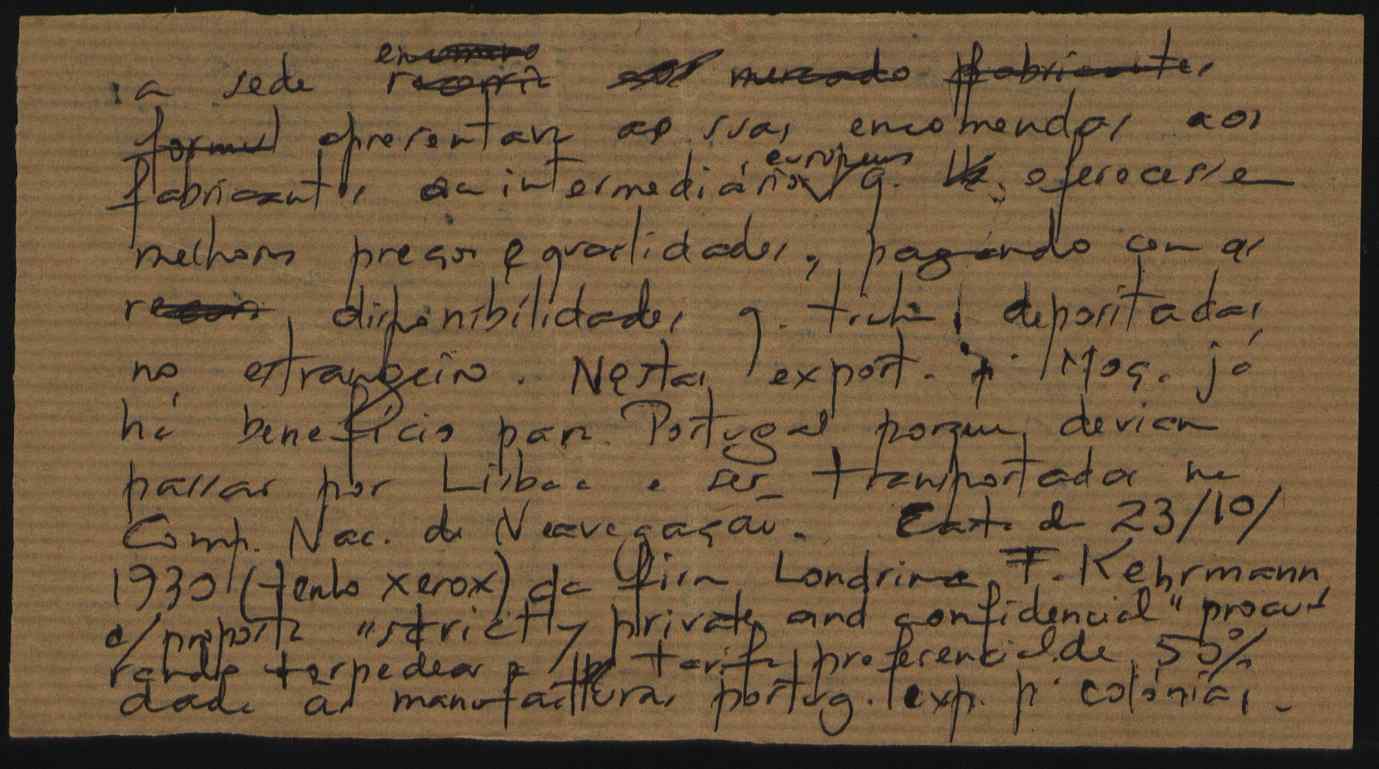 a sede
apresentar as suas encomendas aos
fabricantes ou intermediários europeus q. oferecessem
melhores preços e qualidades, pagando com as
disponibilidades q. tinham depositadas
no estrangeiro. Nestas export. p. Moç. já
há benefício para Portugal porque deviam
passar por Lisboa e ser transportadas na
Comp. Nac. de Navegação. Carta de 23/10/
1930 (tenho xerox) da firma Londrina F. Kehrmann
c/ proposta "strictly private and confidencial" procu
rando torpedear a tarifa preferencial de 55%
dada às manufacturas portug. exp. p. colónias.